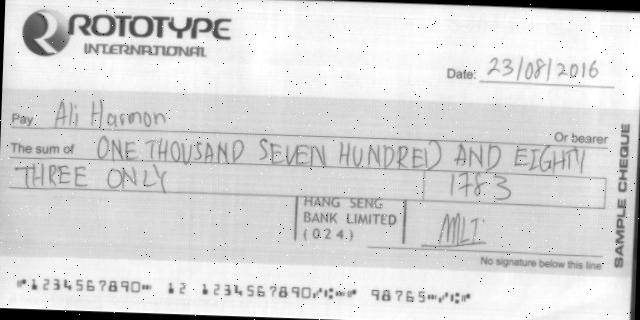 ROTOTYPE
INTERNATIONAL
Date: 23/08/2016
Pay: Ali Harmon
Or bearer
The sum of ONE THOUSAND SEVEN HUNDRED AND EIGHTY
THREE ONLY 1783
HANG SENG
BANK LIMITED
(024.)
MLI
No signature below this line
SAMPLE CHEQUE
⑈1234567890⑈ 12 1234567890⑆⑈ 98765⑈⑆